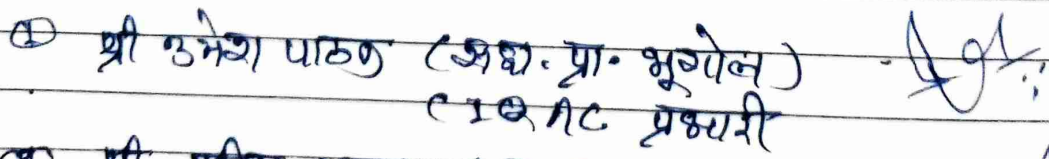 ① श्री उमेश पाठक (सहा. प्रा. भूगोल)
(IQAC प्रभारी